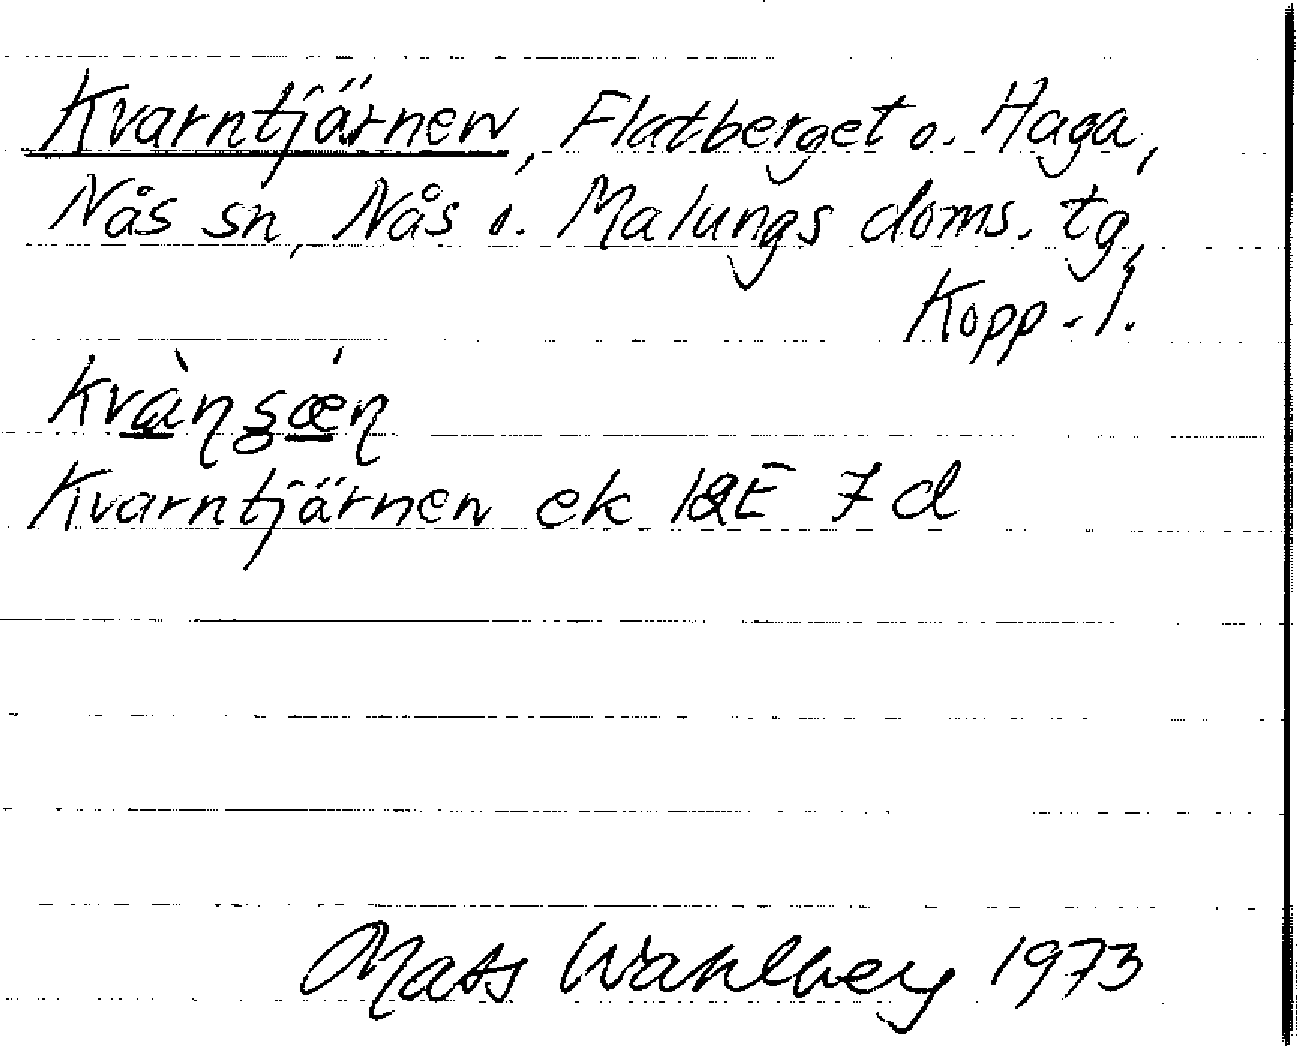 Kvarntjärnen, Flatberget o. Haga,
Nås sn, Nås o. Malungs doms. tg,
Kopp.l.
Kvarntjärnen ek 12E 7d
Mats Wahlberg 1973